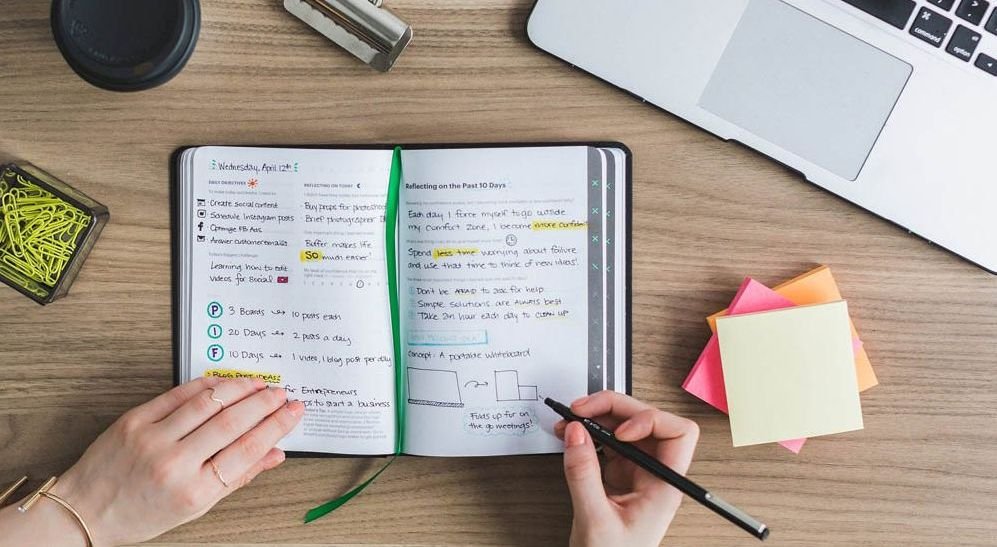 Wednesday, April 12th
DAILY OBJECTIVES
Create Social content
Schedule Instagram posts
Optimize FB Ads
Answer customer emails
Learning how to edit
videos for Social
REFLECTING ON TODAY
Buy props for photoshoot
Brief photographer
Buffer makes life
SO much easier!
P 3 Boards 10 posts each
I 20 Days 2 posts a day
F 10 Days 1 video, 1 blog post per day
BLOG POST IDEAS
for Entrepreneurs
to start a business
Reflecting on the Past 10 Days
Each day I force myself to go outside
my comfort zone, I become more confident
Spend less time worrying about failure
and use that time to think of new ideas!
Don't be AFRAID to ask for help
Simple solutions are ALWAYS best
Take an hour each day to CLEAN UP
Concept: A portable whiteboard
Folds up for on
the go meetings!
command
option